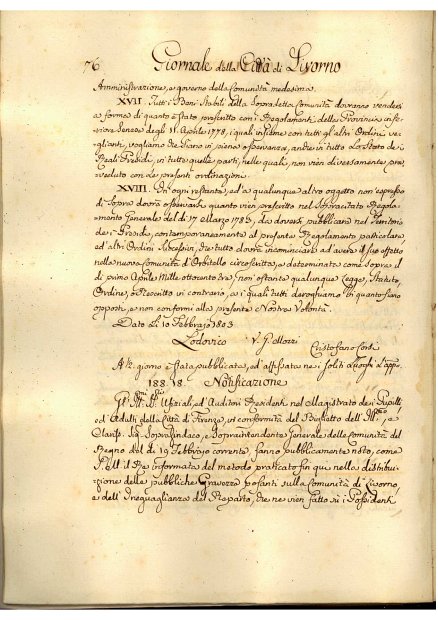 76 Giornale della Città di Livorno
Amministrazione, e governo della Comunità medesima.
XVII. Tutti i Beni Stabili della Sopradetta Comunità dovranno vendersi
a forma di quanto è stato prescritto con i Regolamenti della Provincia infe-
riore Senese degli 11. Aprile 1778, i quali insieme con tutti gli altri Ordini ve-
glianti, vogliamo che siano in piena osservanza, anche in tutto lo Stato dei
Reali Presidi, in tutte quelle parti, nelle quali, non vien diversamente prov-
veduto con le presenti ordinazioni.
XVIII. In ogni restante, ed a qualunque altro oggetto non espresso
di Sopra dovrà osservarsi quanto vien prescritto nel Sopracitato Regola-
mento Generale del dì 17 Marzo 1783, da doversi pubblicare nel Territorio
dei Presidi, contemporaneamente al presente Regolamento particolare,
ed altri Ordini che tutto dovrà incominciare ad avere il suo effetto
nella nuova Comunità d'Orbitello circoscritta, e determinata come sopra il
dì primo Aprile Mille ottocento tre, non ostante qualunque Legge, Statuto,
Ordine, o Rescritto in contrario, a i quali tutti deroghiamo in quanto siano
opposti, e non conformi alla presente Nostra Volontà.
Dato Li 10 Febbrajo 1803.
Lodovico V. J. Mozzi Cristofano
A dì. giorno è stata pubblicata, ed affissata nei Soliti Luoghi
188. 18. Notificazione
Gl' Ufiziali, ed Auditori Presidenti nel Magistrato dei Pupilli
ed Adulti della Città di Firenze, in conformità del Biglietto dell' Ill. e
Clariss. Sig. Soprasindaco, e Sopraintendente Generale delle Comunità del
Regno del dì 19 Febbrajo corrente, fanno pubblicamente noto, come
S. M. il Re informata del metodo praticato fin qui nella distribu-
zione delle pubbliche Gravezze posanti sulla Comunità di Livorno,
e dell' ineguaglianza del Reparto, che ne vien fatto su i Possidenti